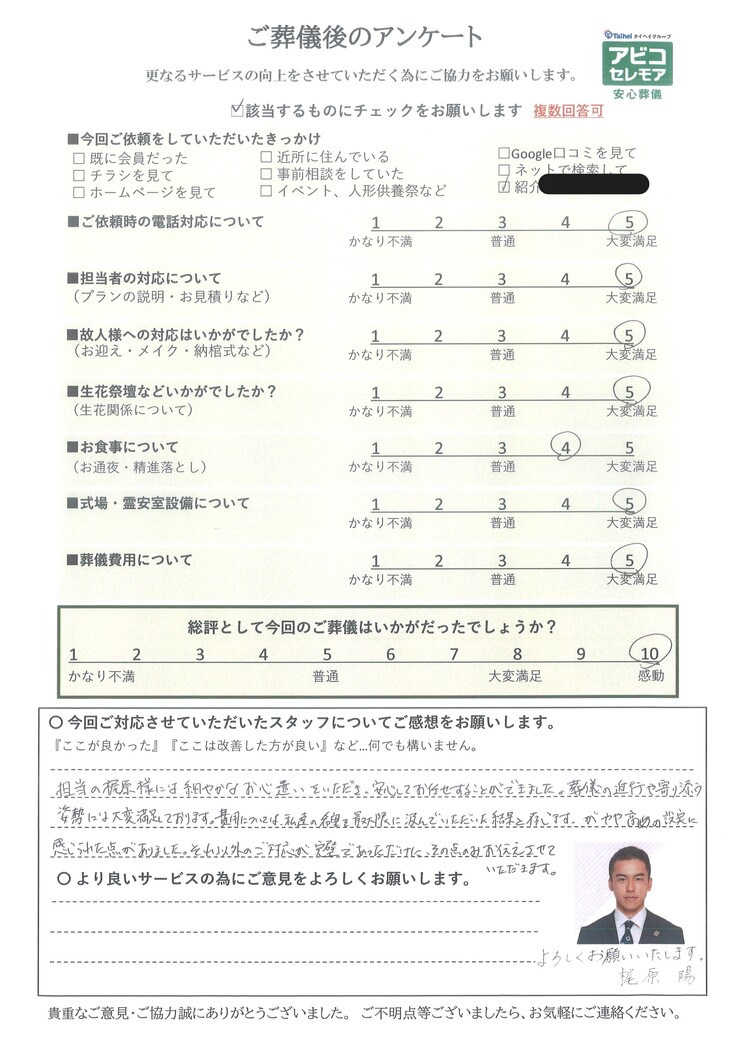 ご葬儀後のアンケート
Taihei タイヘイグループ
アビコ
セレモア
安心葬儀
更なるサービスの向上をさせていただく為にご協力をお願いします。
☑該当するものにチェックをお願いします 複数回答可
■今回ご依頼をしていただいたきっかけ
□ 既に会員だった □ 近所に住んでいる □Google口コミを見て
□ チラシを見て □ 事前相談をしていた □ ネットで検索して
□ ホームページを見て □ イベント、人形供養祭など ☑ 紹介
■ご依頼時の電話対応について 1 2 3 4 5
かなり不満 普通 大変満足
■担当者の対応について 1 2 3 4 5
（プランの説明・お見積りなど） かなり不満 普通 大変満足
■故人様への対応はいかがでしたか？ 1 2 3 4 5
（お迎え・メイク・納棺式など） かなり不満 普通 大変満足
■生花祭壇などいかがでしたか？ 1 2 3 4 5
（生花関係について） かなり不満 普通 大変満足
■お食事について 1 2 3 4 5
（お通夜・精進落とし） かなり不満 普通 大変満足
■式場・霊安室設備について 1 2 3 4 5
かなり不満 普通 大変満足
■葬儀費用について 1 2 3 4 5
かなり不満 普通 大変満足
総評として今回のご葬儀はいかがだったでしょうか？
1 2 3 4 5 6 7 8 9 10
かなり不満 普通 大変満足 感動
〇 今回ご対応させていただいたスタッフについてご感想をお願いします。
『ここが良かった』『ここは改善した方が良い』など…何でも構いません。
担当の梶原様には細やかなお心遣いをいただき、安心してお任せすることができました。葬儀の進行や寄り添う
姿勢には大変満足しております。費用については私達の希望を最大限に汲んでいただいた結果と存じます。がやや高めの設定に
感じられた点がありました。それ以外のご対応が完璧であっただけに、その点のみお伝えさせて
いただきます。
〇 より良いサービスの為にご意見をよろしくお願いします。
よろしくお願いいたします。
梶原 陽
貴重なご意見・ご協力誠にありがとうございました。 ご不明点等ございましたら、お気軽にご連絡ください。